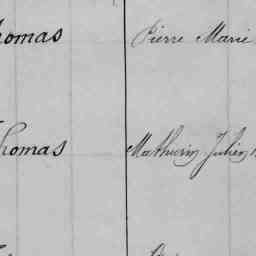 Thomas Pierre Marie
Thomas Mathurin Julien